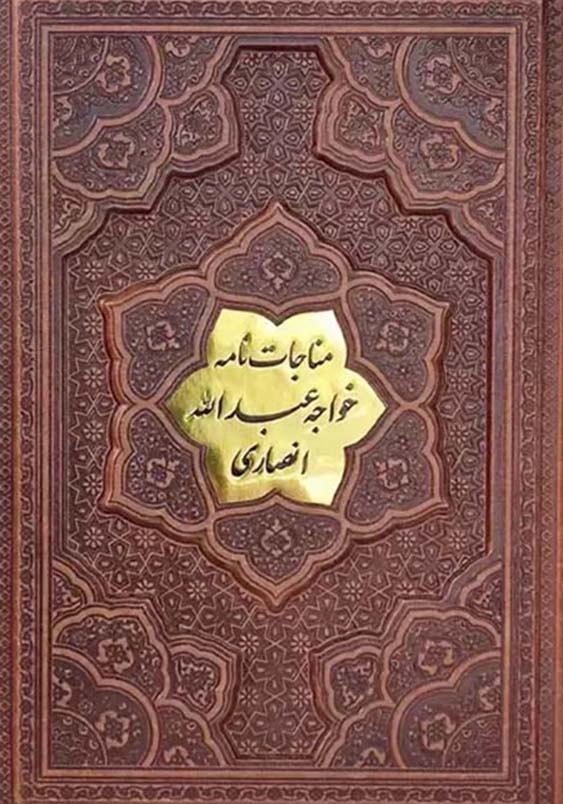 مناجات نامه
خواجه عبدالله
انصاری